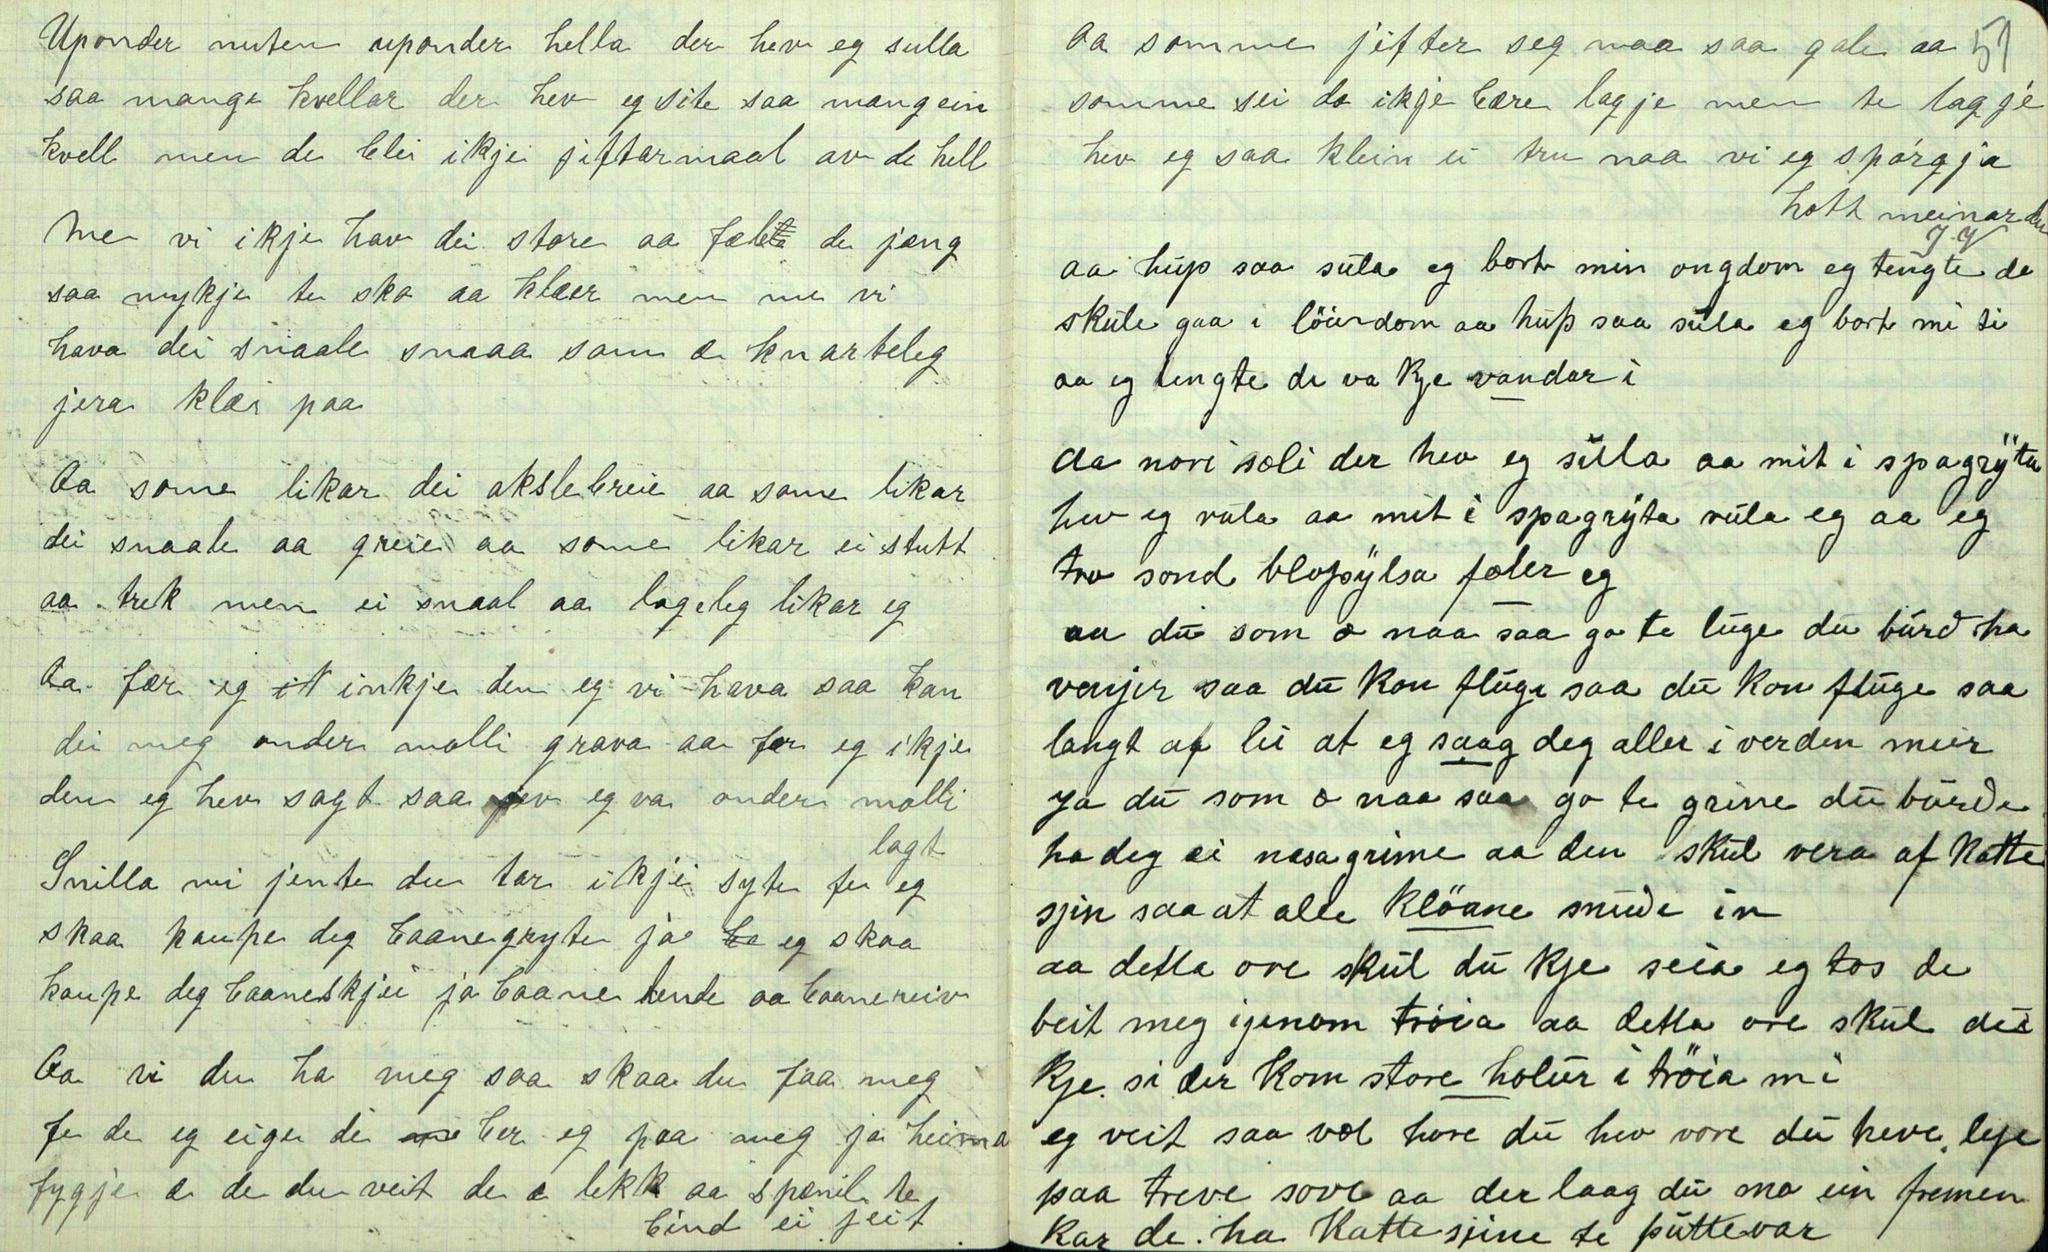 Uponder nuten uponder hella der hev eg sulla
saa mange kvellar der hev eg site saa mang ein
kvell men de blei ikje jiftarmaal av de hell
Me vi ikje hav dei store aa fælete de jeng
saa mykje te sko aa klær men me vi
hava dei snaale snaaa som æ knarteleg
jera klæi paa
Aa some likar dei akslebreie aa some likar
dei snaale aa greie aa some likar ei stutt
aa trek men ei snaal aa lageleg likar eg
Aa fær eg inkje den eg vi hava saa kan
dei meg onder molli grava aa fær eg ikje
den eg hev sagt saa jev eg va onder molli
lagt
Snilla mi jente du tar ikje syte fe eg
skaa kaupe deg baanegryte ja eg skaa
kaupe deg baaneskjei ja baanelende aa baanereiv
Aa vi du ha meg saa skaa du faa meg
fe de eg eige de ber eg paa meg ja heima
fygje æ de du veit de æ lekk aa spænil te
bind ei jeit
Aa somme jifter seg maa saa gale aa 51
somme sei da ikje bære lagje men te lagje
hev eg saa klein ei tru naa vi eg spørgja
hott meinar du
J. Y
aa hup saa sula eg bort min ongdom eg tengte de
skule gaa i löierdom aa hup saa sula eg bort mi ti
aa eg tengte de va kje vandar i
Aa nori sæli der hev eg sulla aa mit i spagryta
hev eg rula aa mit i spagryta rula eg aa eg
tro sond blopylsa fæler eg
aa du som æ naa saa go te luge du burd ha
venjir saa du kon fluge saa du kon fluge saa
langt af lei at eg saag deg aller i verden meir
ja du som æ naa saa go te grine du burde
ha deg ei nasagrime aa den skul vera af katte
sjin saa at alle klöane snude in
aa detta ore skul du kje seia eg tos de
beit meg igenom tröia aa detta ore skul du
kje si der kom store holur i tröia mi
eg veit saa væl hore du hev vore du heve leje
paa treve sove aa der laag du mæ ein fremen
kar de ha kattesjine te puttevar